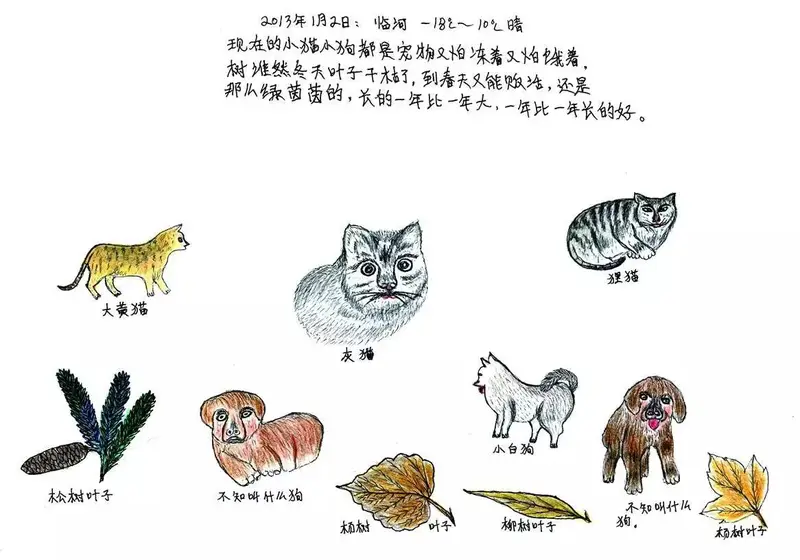 2013年1月2日: 临河 -18℃~10℃晴
现在的小猫小狗都是宠物又怕冻着又怕饿着,
树虽然冬天叶子干枯了,到春天又能复活,还是
那么绿茵茵的,长的一年比一年大,一年比一年长的好。
大黄猫
灰猫
狸猫
松树叶子
不知叫什么狗
杨树叶子
小白狗
柳树叶子
不知叫什么
狗。
杨树叶子